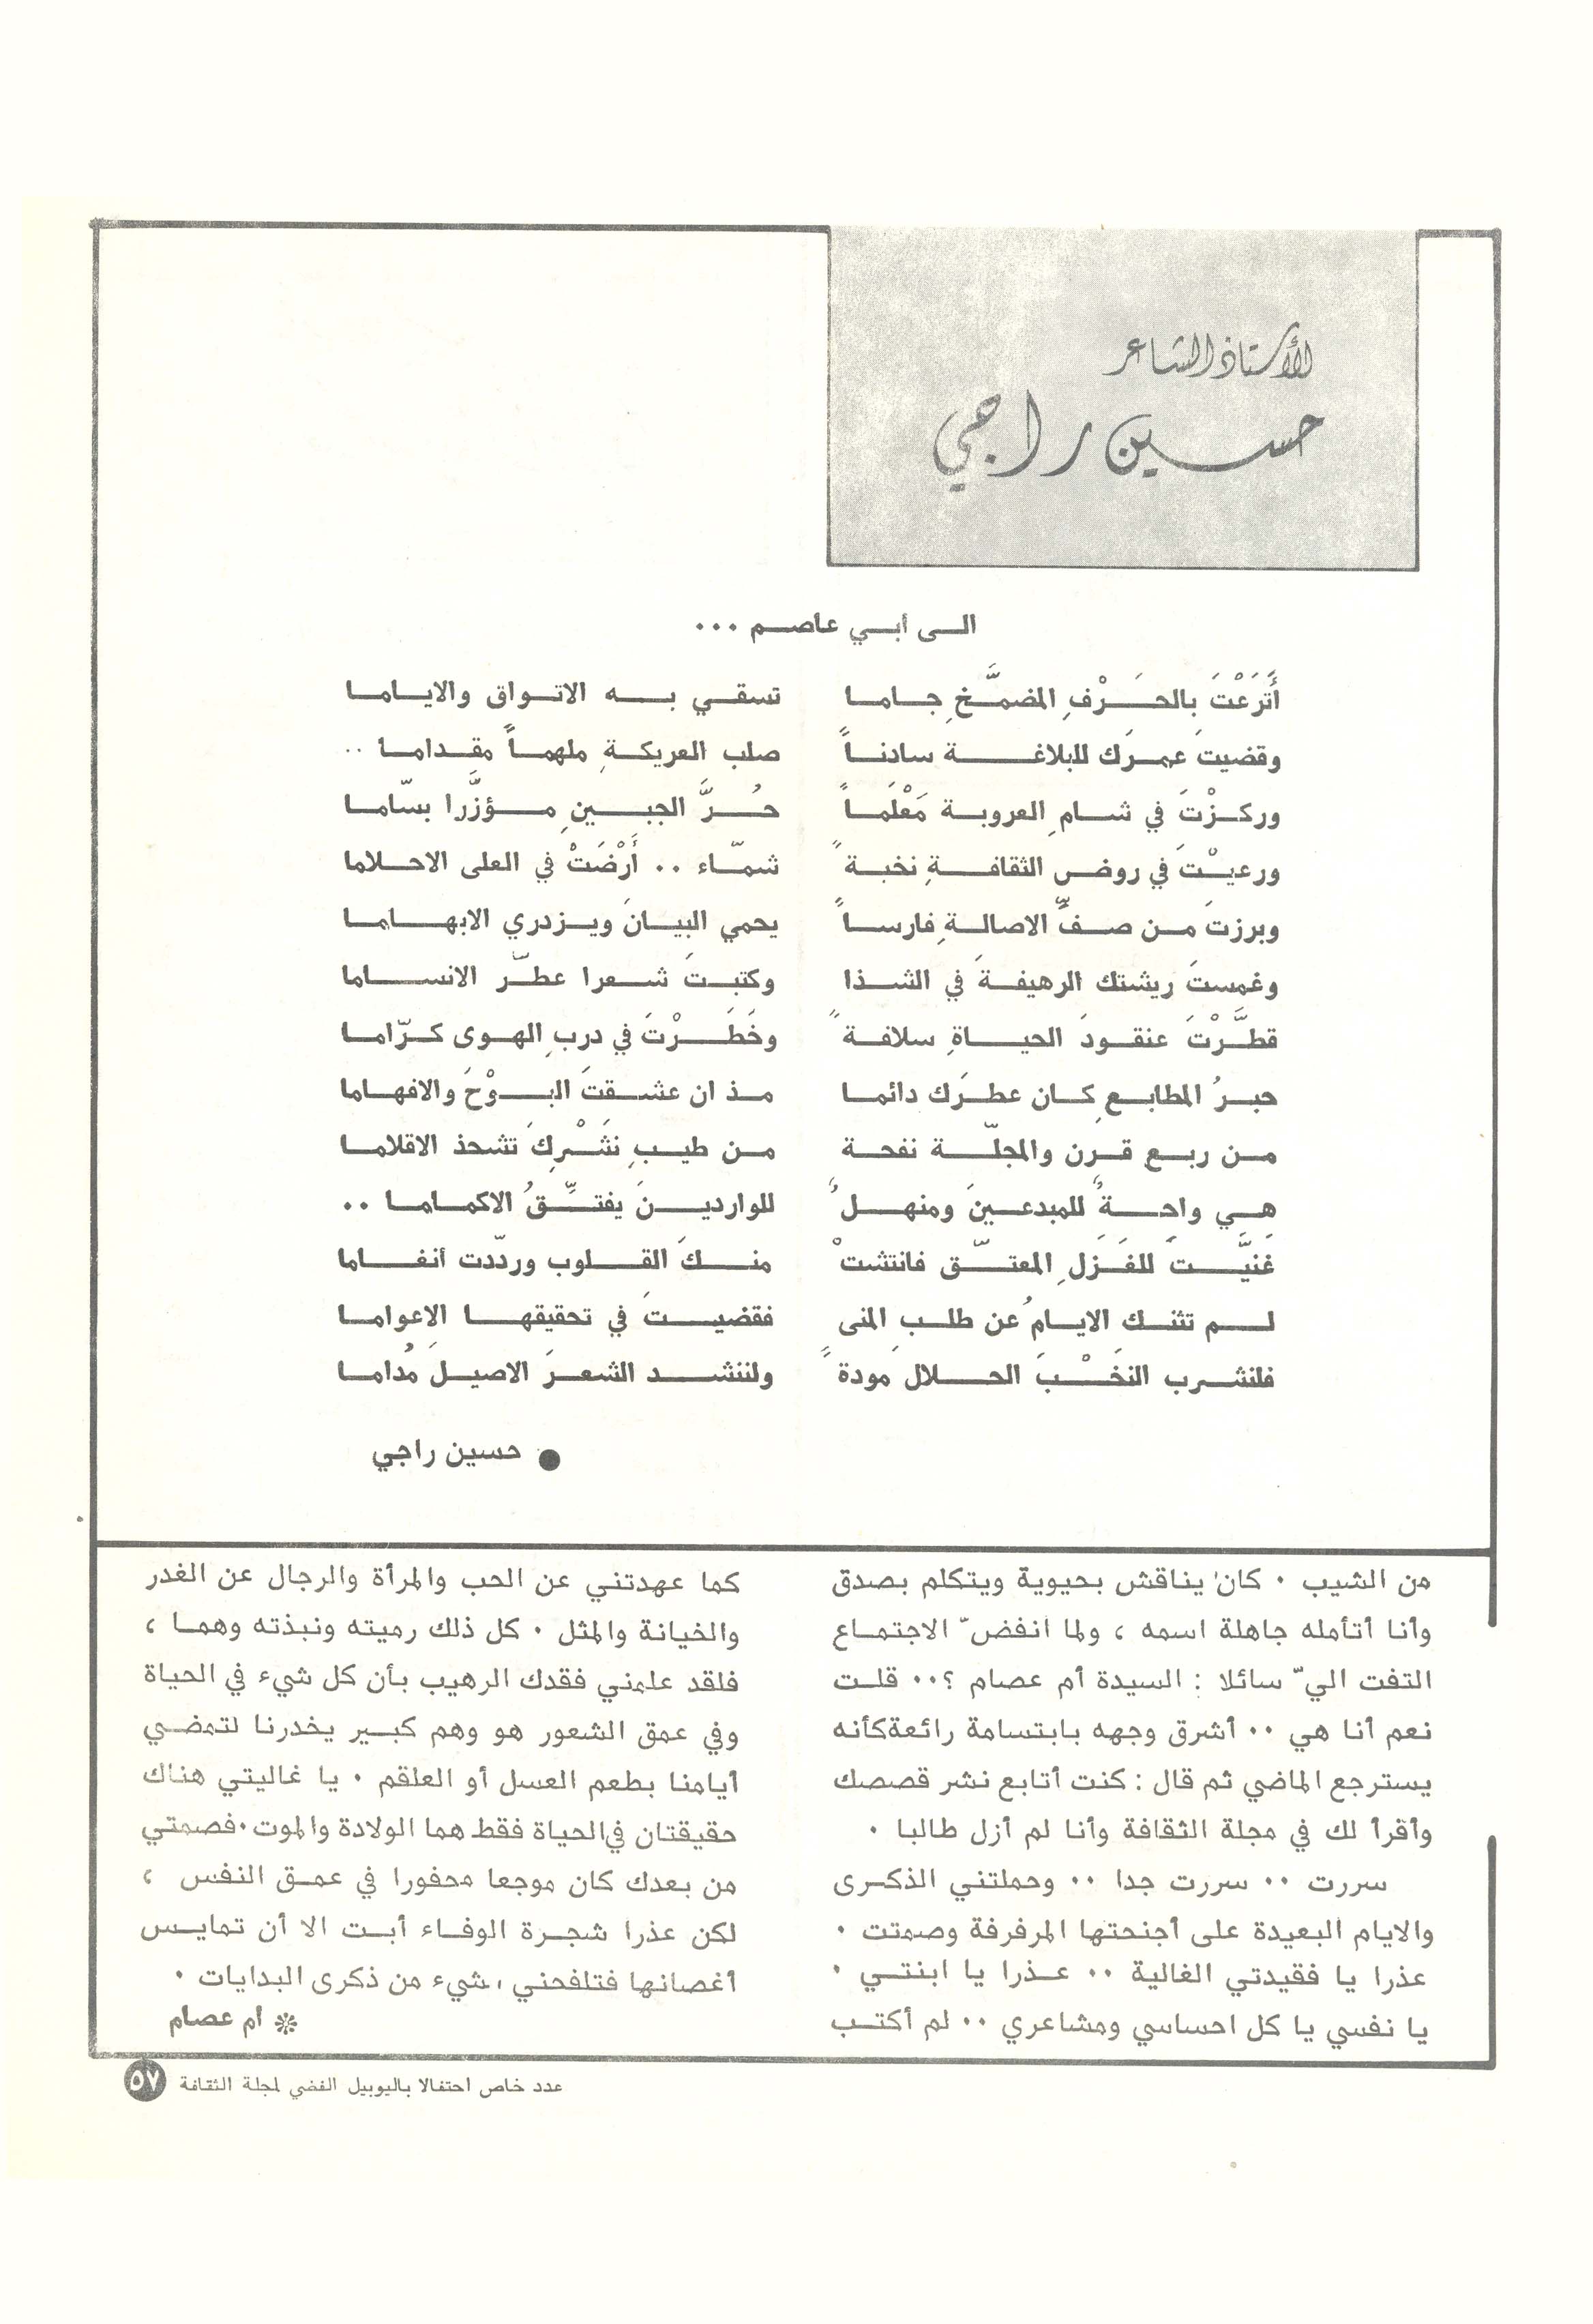 الأستاذ الشاعر
حسين راجي
الى أبي عاصم ...
أَتْرَعْتَ بالحَرْفِ المضمَّخِ جاما تسقي به الاتواق والاياما
وقضيتَ عمرَك للبلاغة سادناً صلب العريكةِ ملهماً مقداما ..
وركزْتَ في شامِ العروبة مَعْلَماً حُرَّ الجبينِ مؤزَّرا بسّاما
ورعيْتَ في روض الثقافةِ نخبةً شمّاء .. أَرْضَتْ في العلى الاحلاما
وبرزتَ من صفِّ الاصالةِ فارساً يحمي البيانَ ويزدري الابهاما
وغمستَ ريشتك الرهيفةَ في الشذا وكتبتَ شعرا عطّر الانساما
قطَّرْتَ عنقودَ الحياةِ سلافةً وخَطَرْتَ في دربِ الهوى كرّاما
حبرُ المطابعِ كان عطرَك دائما مذ ان عشقتَ البوْحَ والافهاما
من ربع قرن والمجلّة نفحة من طيبِ نشْرِكَ تشحذ الاقلاما
هِي واحةٌ للمبدعينَ ومنهلٌ للواردينَ يفتِّقُ الاكماما ..
غنيَّتَ للغَزَلِ المعتّق فانتشتْ منكَ القلوب وردّدت أنغاما
لم تثنك الايامُ عن طلبِ المنى فقضيتَ في تحقيقها الاعواما
فلنشرب النخْبَ الحلال مودةً ولننشد الشعرَ الاصيلَ مُداما
● حسين راجي
من الشيب . كان يناقش بحيوية ويتكلم بصدق
وأنا أتأمله جاهلة اسمه ، ولما انفضّ الاجتماع
التفت اليّ سائلا : السيدة أم عصام ؟.. قلت
نعم أنا هي .. أشرق وجهه بابتسامة رائعة كأنه
يسترجع الماضي ثم قال : كنت أتابع نشر قصصك
وأقرأ لك في مجلة الثقافة وأنا لم أزل طالبا .
سررت .. سررت جدا .. وحملتني الذكرى
والايام البعيدة على أجنحتها المرفرفة وصمتت .
عذرا يا فقيدتي الغالية .. عذرا يا ابنتي .
يا نفسي يا كل احساسي ومشاعري .. لم أكتب
كما عهدتني عن الحب والمرأة والرجال عن الغدر
والخيانة والمثل . كل ذلك رميته ونبذته وهما ،
فلقد علمني فقدك الرهيب بأن كل شيء في الحياة
وفي عمق الشعور هو وهم كبير يخدرنا لتمضي
أيامنا بطعم العسل أو العلقم . يا غاليتي هناك
حقيقتان في الحياة فقط هما الولادة والموت . فصمتي
من بعدك كان موجعا محفورا في عمق النفس ،
لكن عذرا شجرة الوفاء أبت الا أن تمايس
أغصانها فتلفحني ، شيء من ذكرى البدايات .
* أم عصام
عدد خاص احتفالا باليوبيل الفضي لمجلة الثقافة ٥٧